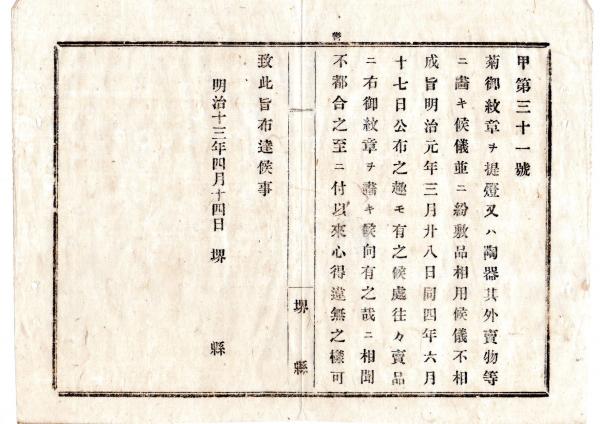 甲第三十一號
菊御紋章ヲ提燈又ハ陶器其外賣物等
ニ畵キ候儀並ニ紛敷品相用候儀不相
成旨明治元年三月廿八日同四年六月
十七日公布之趣モ有之候處往々賣品
ニ右御紋章ヲ畵キ候向有之哉ニ相聞
不都合之至ニ付以來心得違無之樣可
堺縣
致此旨布達候事
明治十三年四月十四日 堺縣